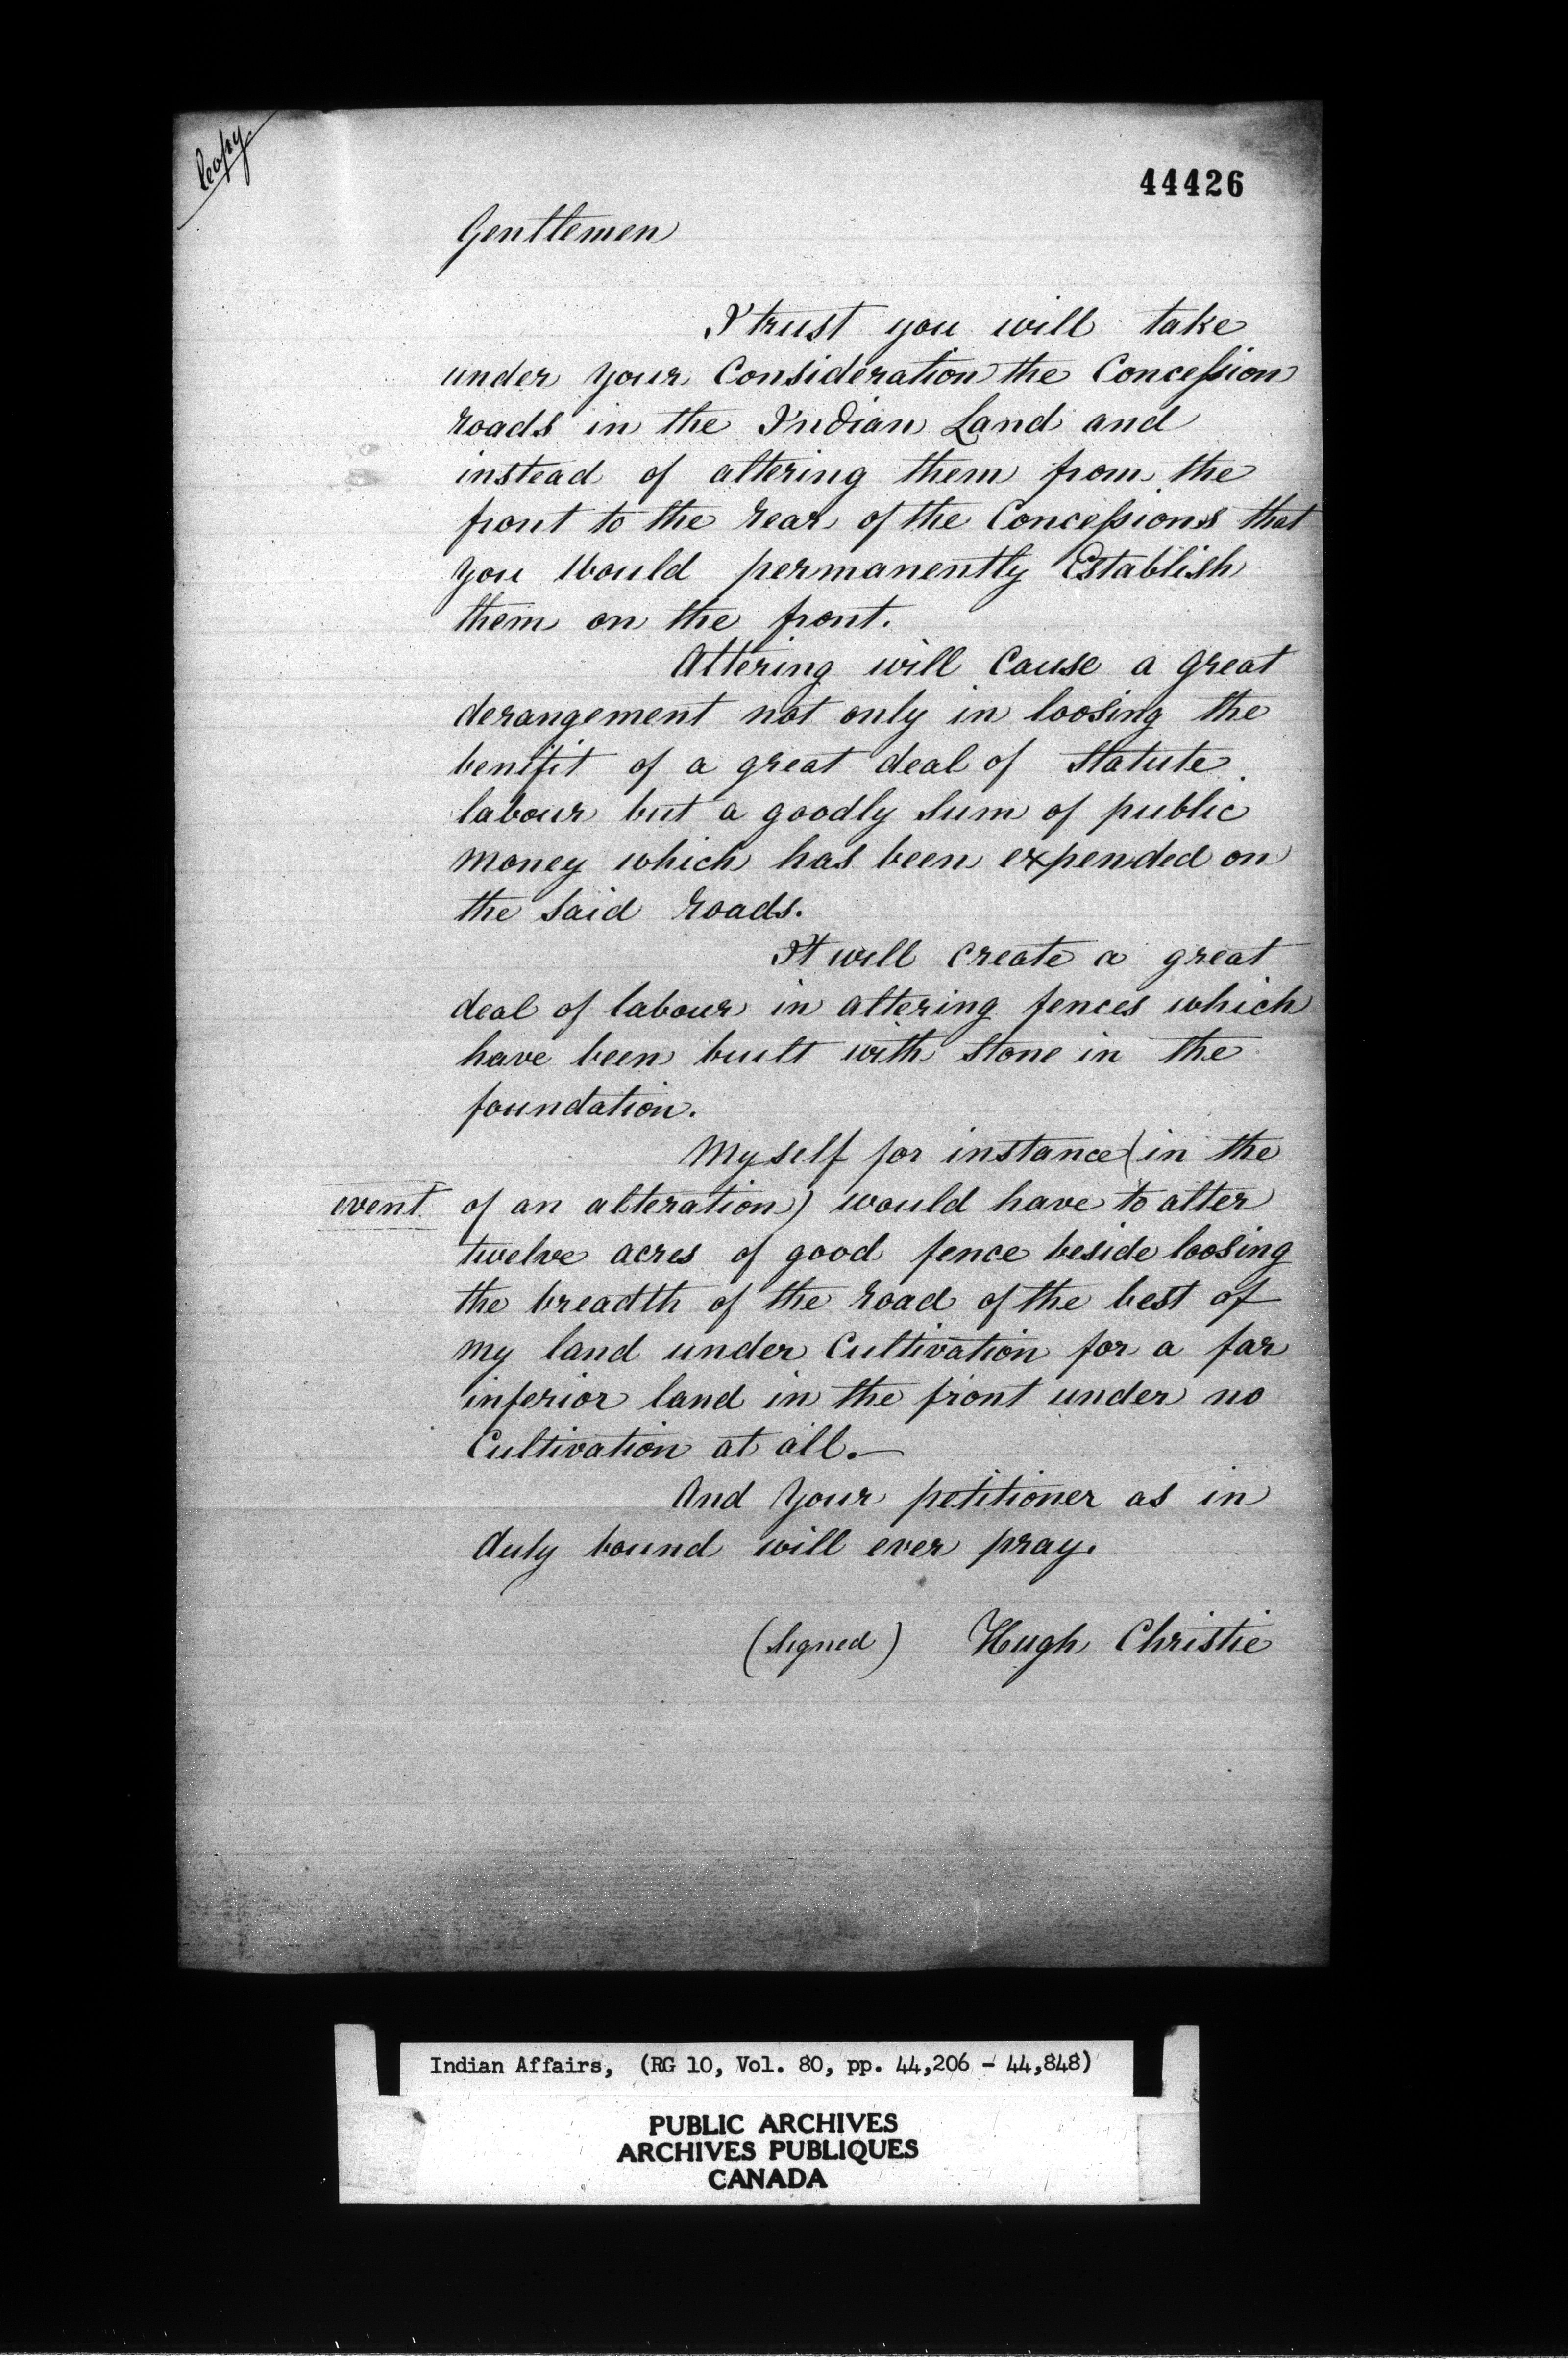 Copy
44426
Gentlemen
I trust you will take
under your Consideration the Concession
roads in the Indian Land and
instead of altering them from the
front to the rear of the Concessions that
you would permanently Establish
them on the front.
Altering will cause a great
derangement not only in loosing the
benifit of a great deal of Statute
labour but a goodly sum of public
money which has been expended on
the said roads.
It will create a great
deal of labour in altering fences which
have been built with stone in the
foundation.
Myself for instance (in the
event of an alteration) would have to alter
twelve acres of good fence beside loosing
the breadth of the road of the best of
my land under Cultivation for a far
inferior land in the front under no
Cultivation at all.—
And your petitioner as in
duty bound will ever pray.
(Signed) Hugh Christie
Indian Affairs, (RG 10, Vol. 80, pp. 44,206 - 44,848)
PUBLIC ARCHIVES
ARCHIVES PUBLIQUES
CANADA